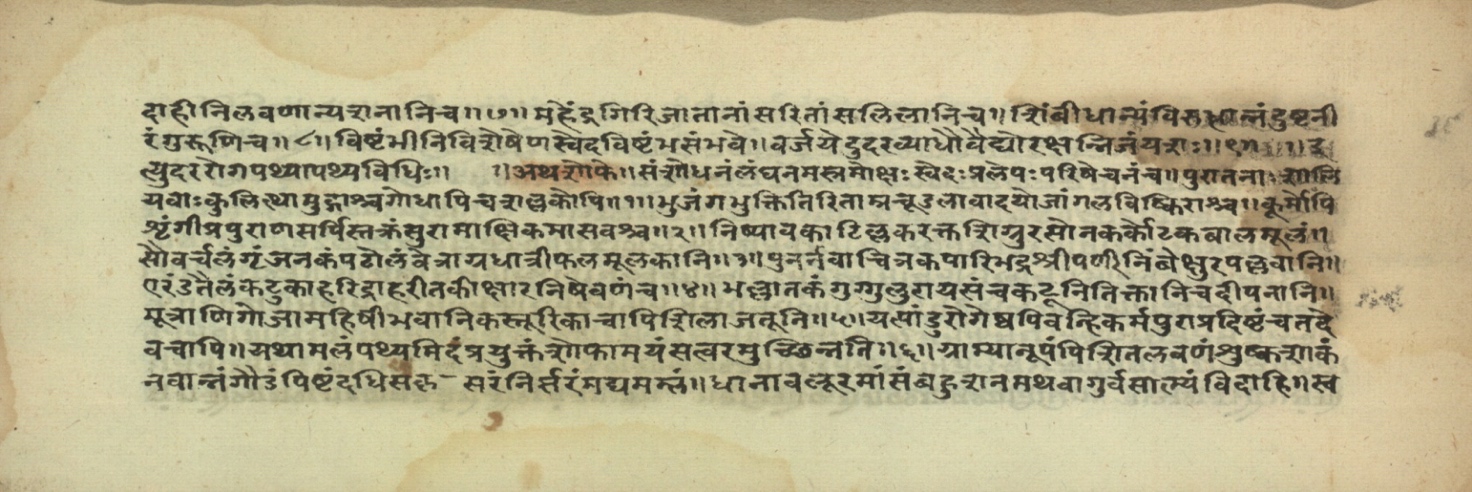 दाहीनिलवणान्यशनानिच॥७॥महेंद्रगिरिजातानांसरितांसलिलानिच॥शिंबीधान्यंविरुद्धान्नंदुष्टनी
रंगुरूणिच॥८॥विष्टंभीनिविशेषेणस्वेदविष्टंभसंभवे॥वर्जयेदुदरव्याधौवैद्योरक्षन्निजंयशः॥९॥॥इ
त्युदररोगपथ्यापथ्यविधिः॥॥अथशोफे॥संशोधनंलंघनमस्रमोक्षःस्वेदःप्रलेपःपरिषेचनंच॥पुरातनाःशालि
यवाःकुलित्थामुद्गाश्चगोधापिचशल्लकोपि॥१॥भुजंगभुक्तितिरिताम्रचूडलावादयोजांगलविष्किराश्च॥कूर्मोपि
शृंगीप्रपुराणसर्पिस्तक्रंसुरामाक्षिकमासवश्च॥२॥निष्पावकाटिल्लकरक्तशिग्रुरसोनकर्कोटकबालमूलं॥
सौवर्चलंगृंजनकंपटोलंवेत्राग्रधात्रीफलमूलकानि॥३॥पुनर्नवाचित्रकपारिभद्रश्रीपर्णीनिंबेक्षुरपल्लवानि॥
एरंडतैलंकटुकाहरिद्राहरीतकीक्षारनिषेवणंच॥४॥भल्लातकंगुग्गुलुरायसंचकटूनितिक्तानिचदीपनानि॥
मूत्राणिगोजामहिषीभवानिकस्तूरिकाचापिशिलाजतूनि॥५॥यत्पांडुरोगेष्वपिवन्हिकर्मपुराप्रदिष्टंचतदे
वचापि॥यथामलंपथ्यमिदंप्रयुक्तंशोफामयंसत्वरमुच्छिनत्ति॥६॥ग्राम्यानूपंपिशितलवणंशुष्कशाकं
नवान्नंगौडंपिष्टंदधिसकृसरंनिर्सरंमद्यमम्लं॥धानावल्लूरमांसंबदुशनमथवागुर्वसात्म्यंविदाहि॥स्व